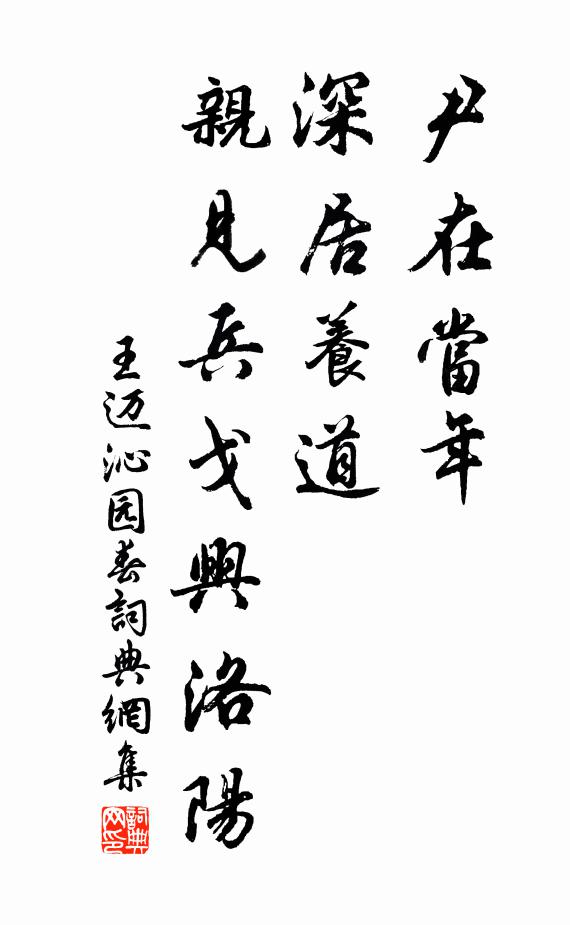 尹在當年
深居養道
親見兵戈興洛陽
王迈沁园春詞典網集
詞典
网印